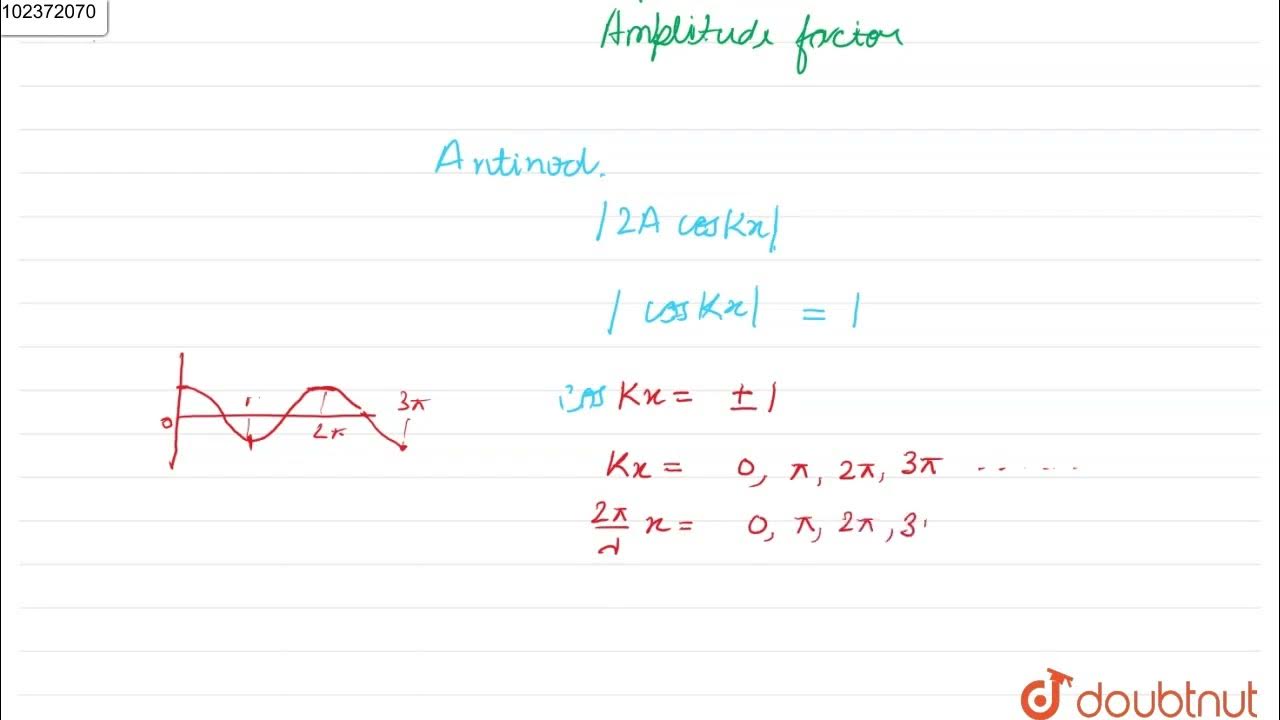 102372070
Amplitude factor
Antinod.
|2A cosKx|
|cosKx| = 1
cos Kx = ± 1
Kx = 0, π, 2π, 3π ......
2π/λ x = 0, π, 2π, 3
0 2π 3π
doubtnut